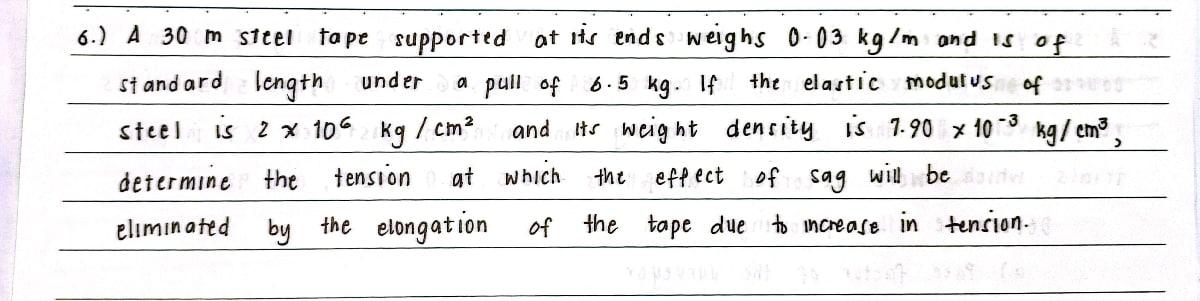 6.) A 30 m steel tape supported at its ends weighs 0.03 kg/m and is of
standard length under a pull of 6.5 kg. If the elastic modulus of
steel is 2 x 10⁶ kg/cm² and its weight density is 7.90 x 10⁻³ kg/cm³,
determine the tension at which the effect of sag will be
eliminated by the elongation of the tape due to increase in tension.